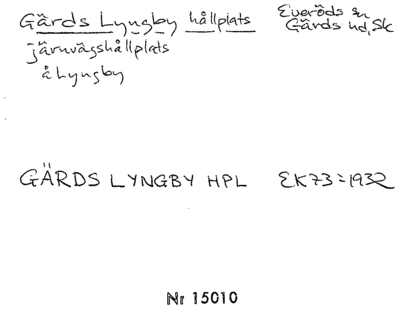 Gärds Lyngby hållplats
Everöds sn
Gärds hd, Sk
järnvägshållplats
å Lyngby
GÄRDS LYNGBY HPL EK73 = 1932
Nr 15010